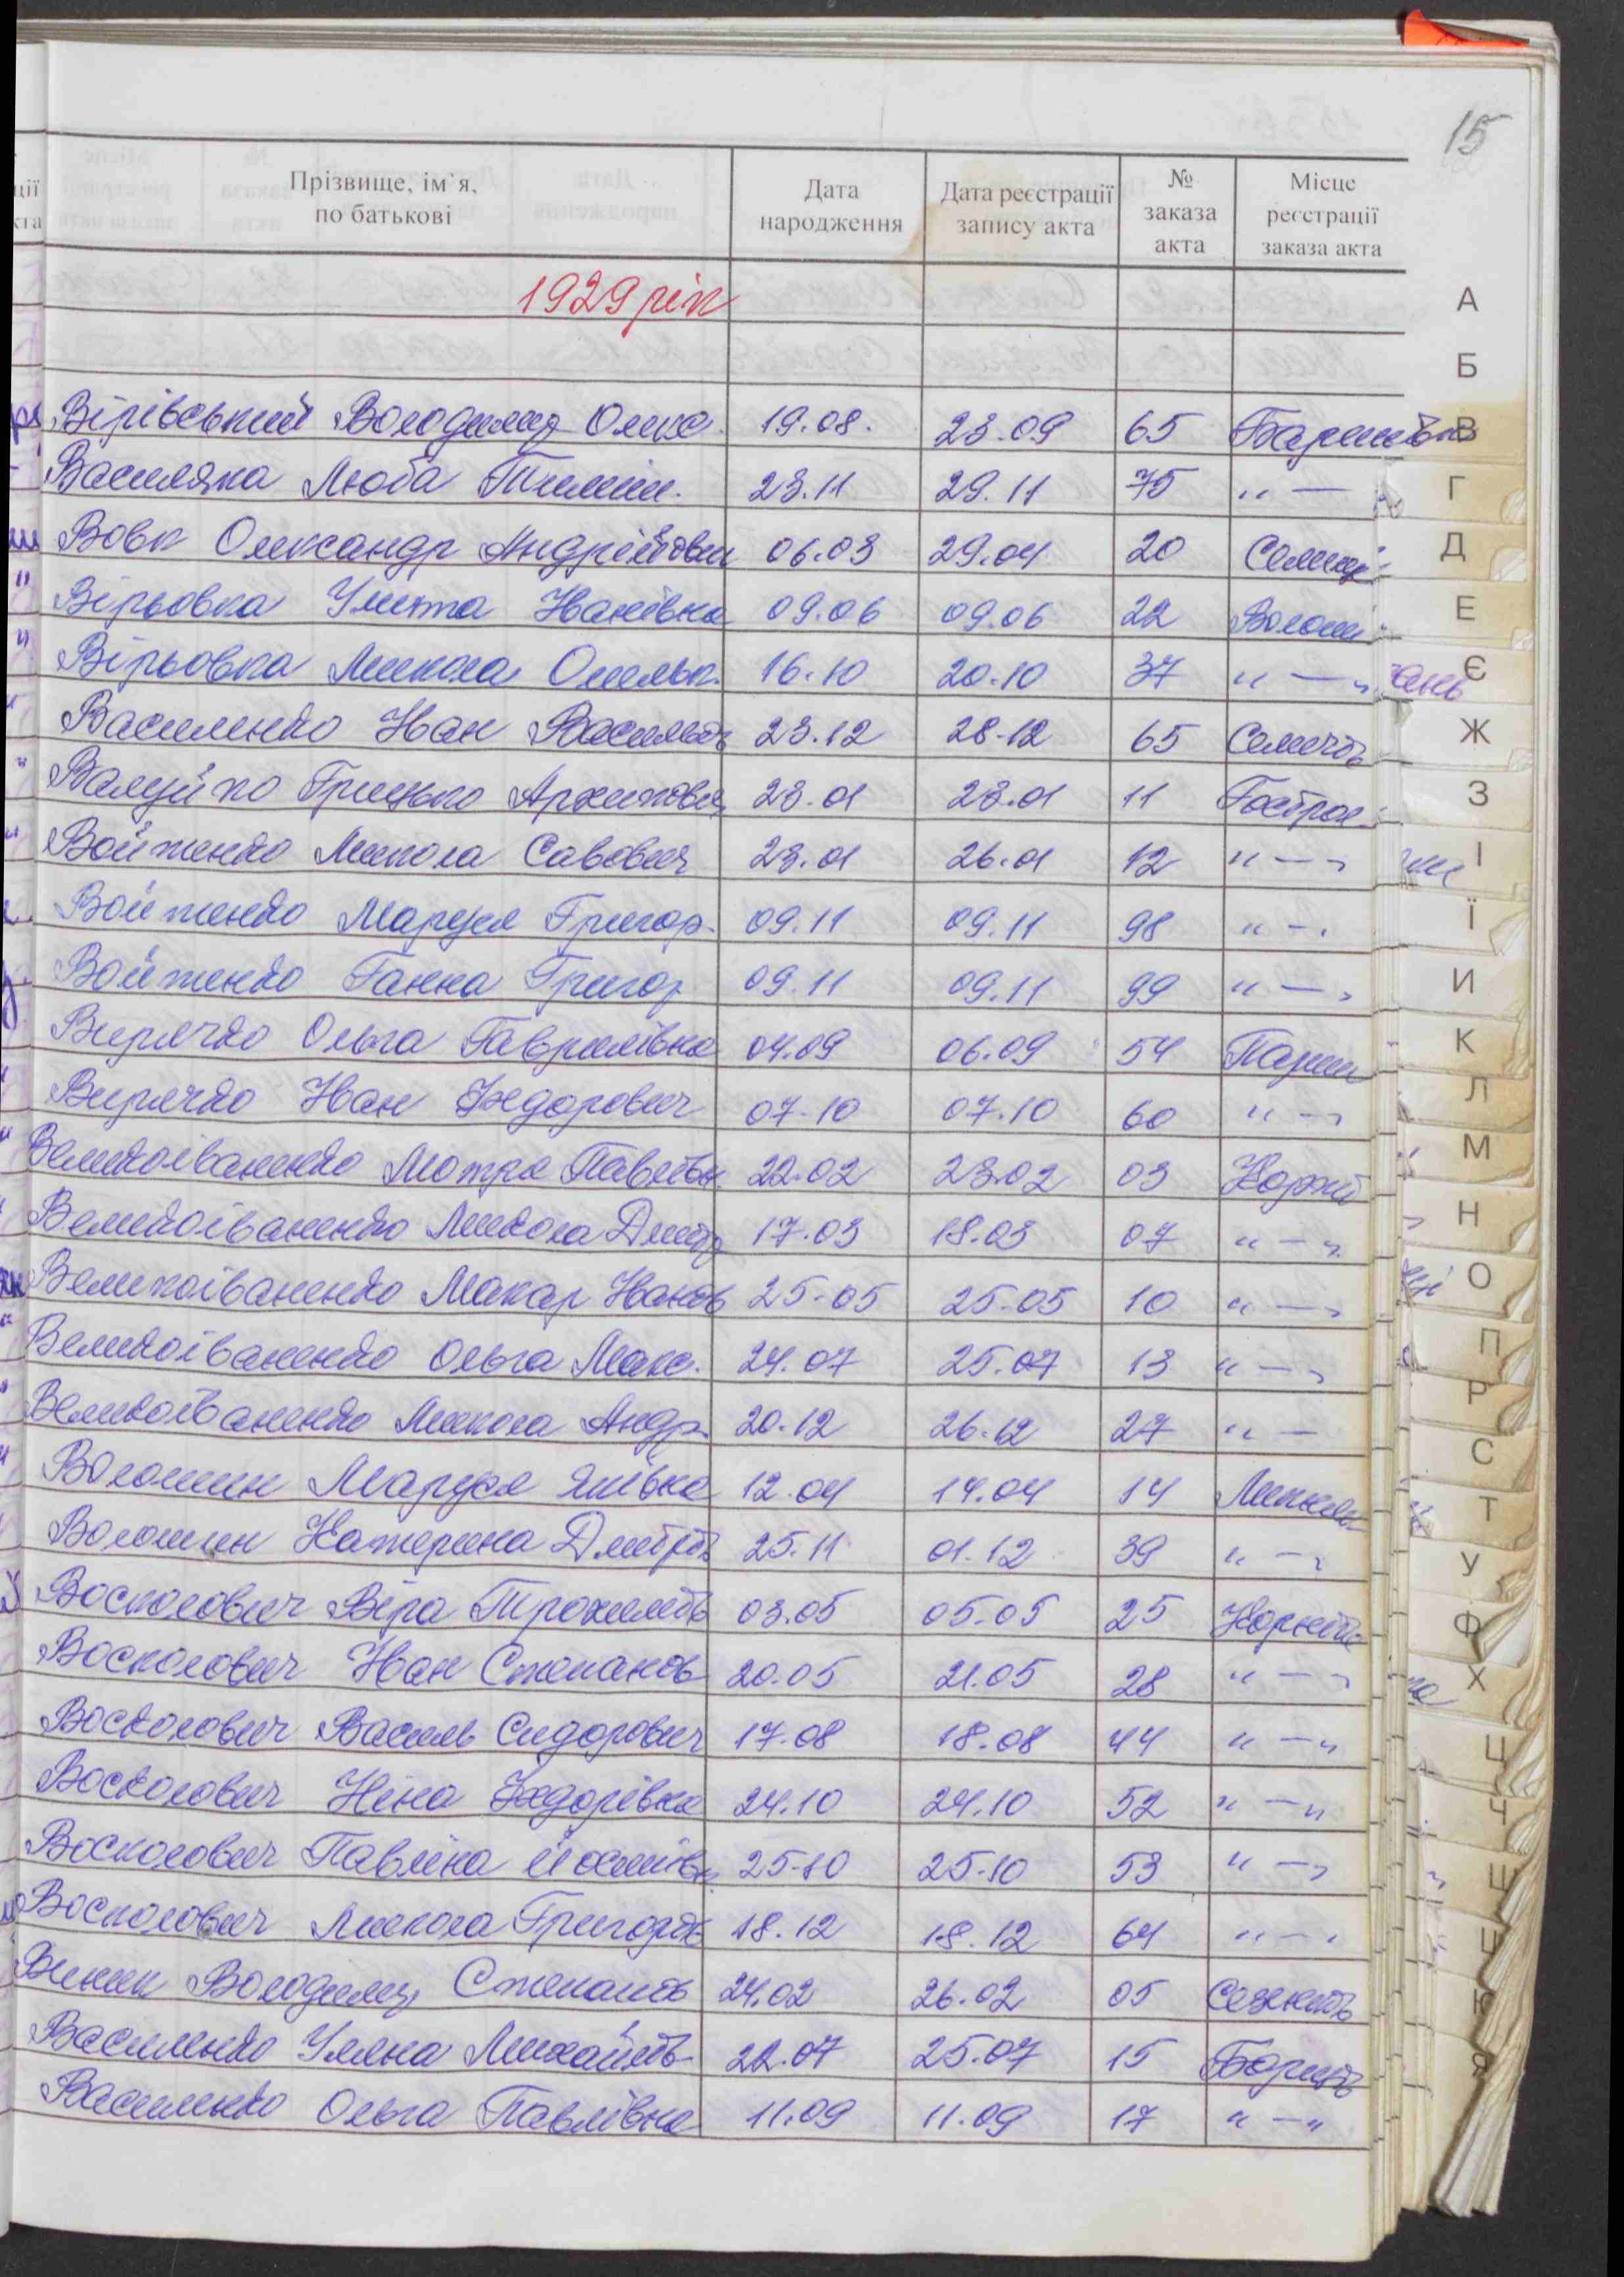 15
Прізвище, ім`я, по батькові | Дата народження | Дата реєстрації запису акта | № заказа акта | Місце реєстрації заказа акта
1929 рік
Вірівський Володимир Олекс. 19.08. 23.09 65 Баришівка
Василяка Люба Тиміш. 23.11 29.11 75 " —
Вовк Олександр Андрійович 06.03 29.04 20 Селищ
Вірьовка Улита Іванівна 09.06 09.06 22 Волош
Вірьовка Микола Омельк. 16.10 20.10 37 " — "
Василенко Іван Васильов 23.12 28.12 65 Селичів
Валуйко Грицько Архипович 23.01 23.01 11 Гостро
Войтенко Микола Савович 23.01 26.01 12 " — "
Войтенко Маруся Григор. 09.11 09.11 98 " — "
Войтенко Ганна Григор 09.11 09.11 99 " — "
Вирячко Ольга Гаврилівна 04.09 06.09 54 Париш
Вирячко Іван Федорович 07.10 07.10 60 " — "
Великоіваненко Мотря Павлівн 22.02 23.02 03 Коржі
Великоіваненко Микола Дмитр 17.03 18.03 07 " — "
Великоіваненко Макар Іванов 25.05 25.05 10 " — "
Великоіваненко Ольга Макс. 24.07 25.07 13 " — "
Великоіваненко Микола Андр. 20.12 26.12 27 " —
Волошин Маруся Яківна 12.04 14.04 14 Лукьян
Волошин Катерина Дмитрів 25.11 01.12 39 " — "
Восколович Віра Трохимів 03.05 05.05 25 Корніїв
Восколович Іван Степанов 20.05 21.05 28 " — "
Восколович Василь Сидорович 17.08 18.08 44 " — "
Восколович Ніна Федорівна 24.10 24.10 52 " — "
Восколович Павліна Йосипівн 25.10 25.10 53 " — "
Восколович Микола Григоров 18.12 18.12 64 " — "
Виник Володимир Степанов 24.02 26.02 05 Сезенків
Василенко Уляна Михайлів 22.07 25.07 15 Борщів
Василенко Ольга Павлівна 11.09 11.09 17 " — "
А
Б
В
Г
Д
Е
Є
Ж
З
І
Ї
И
К
Л
М
Н
О
П
Р
С
Т
У
Ф
Х
Ц
Ч
Ш
Щ
Ю
Я